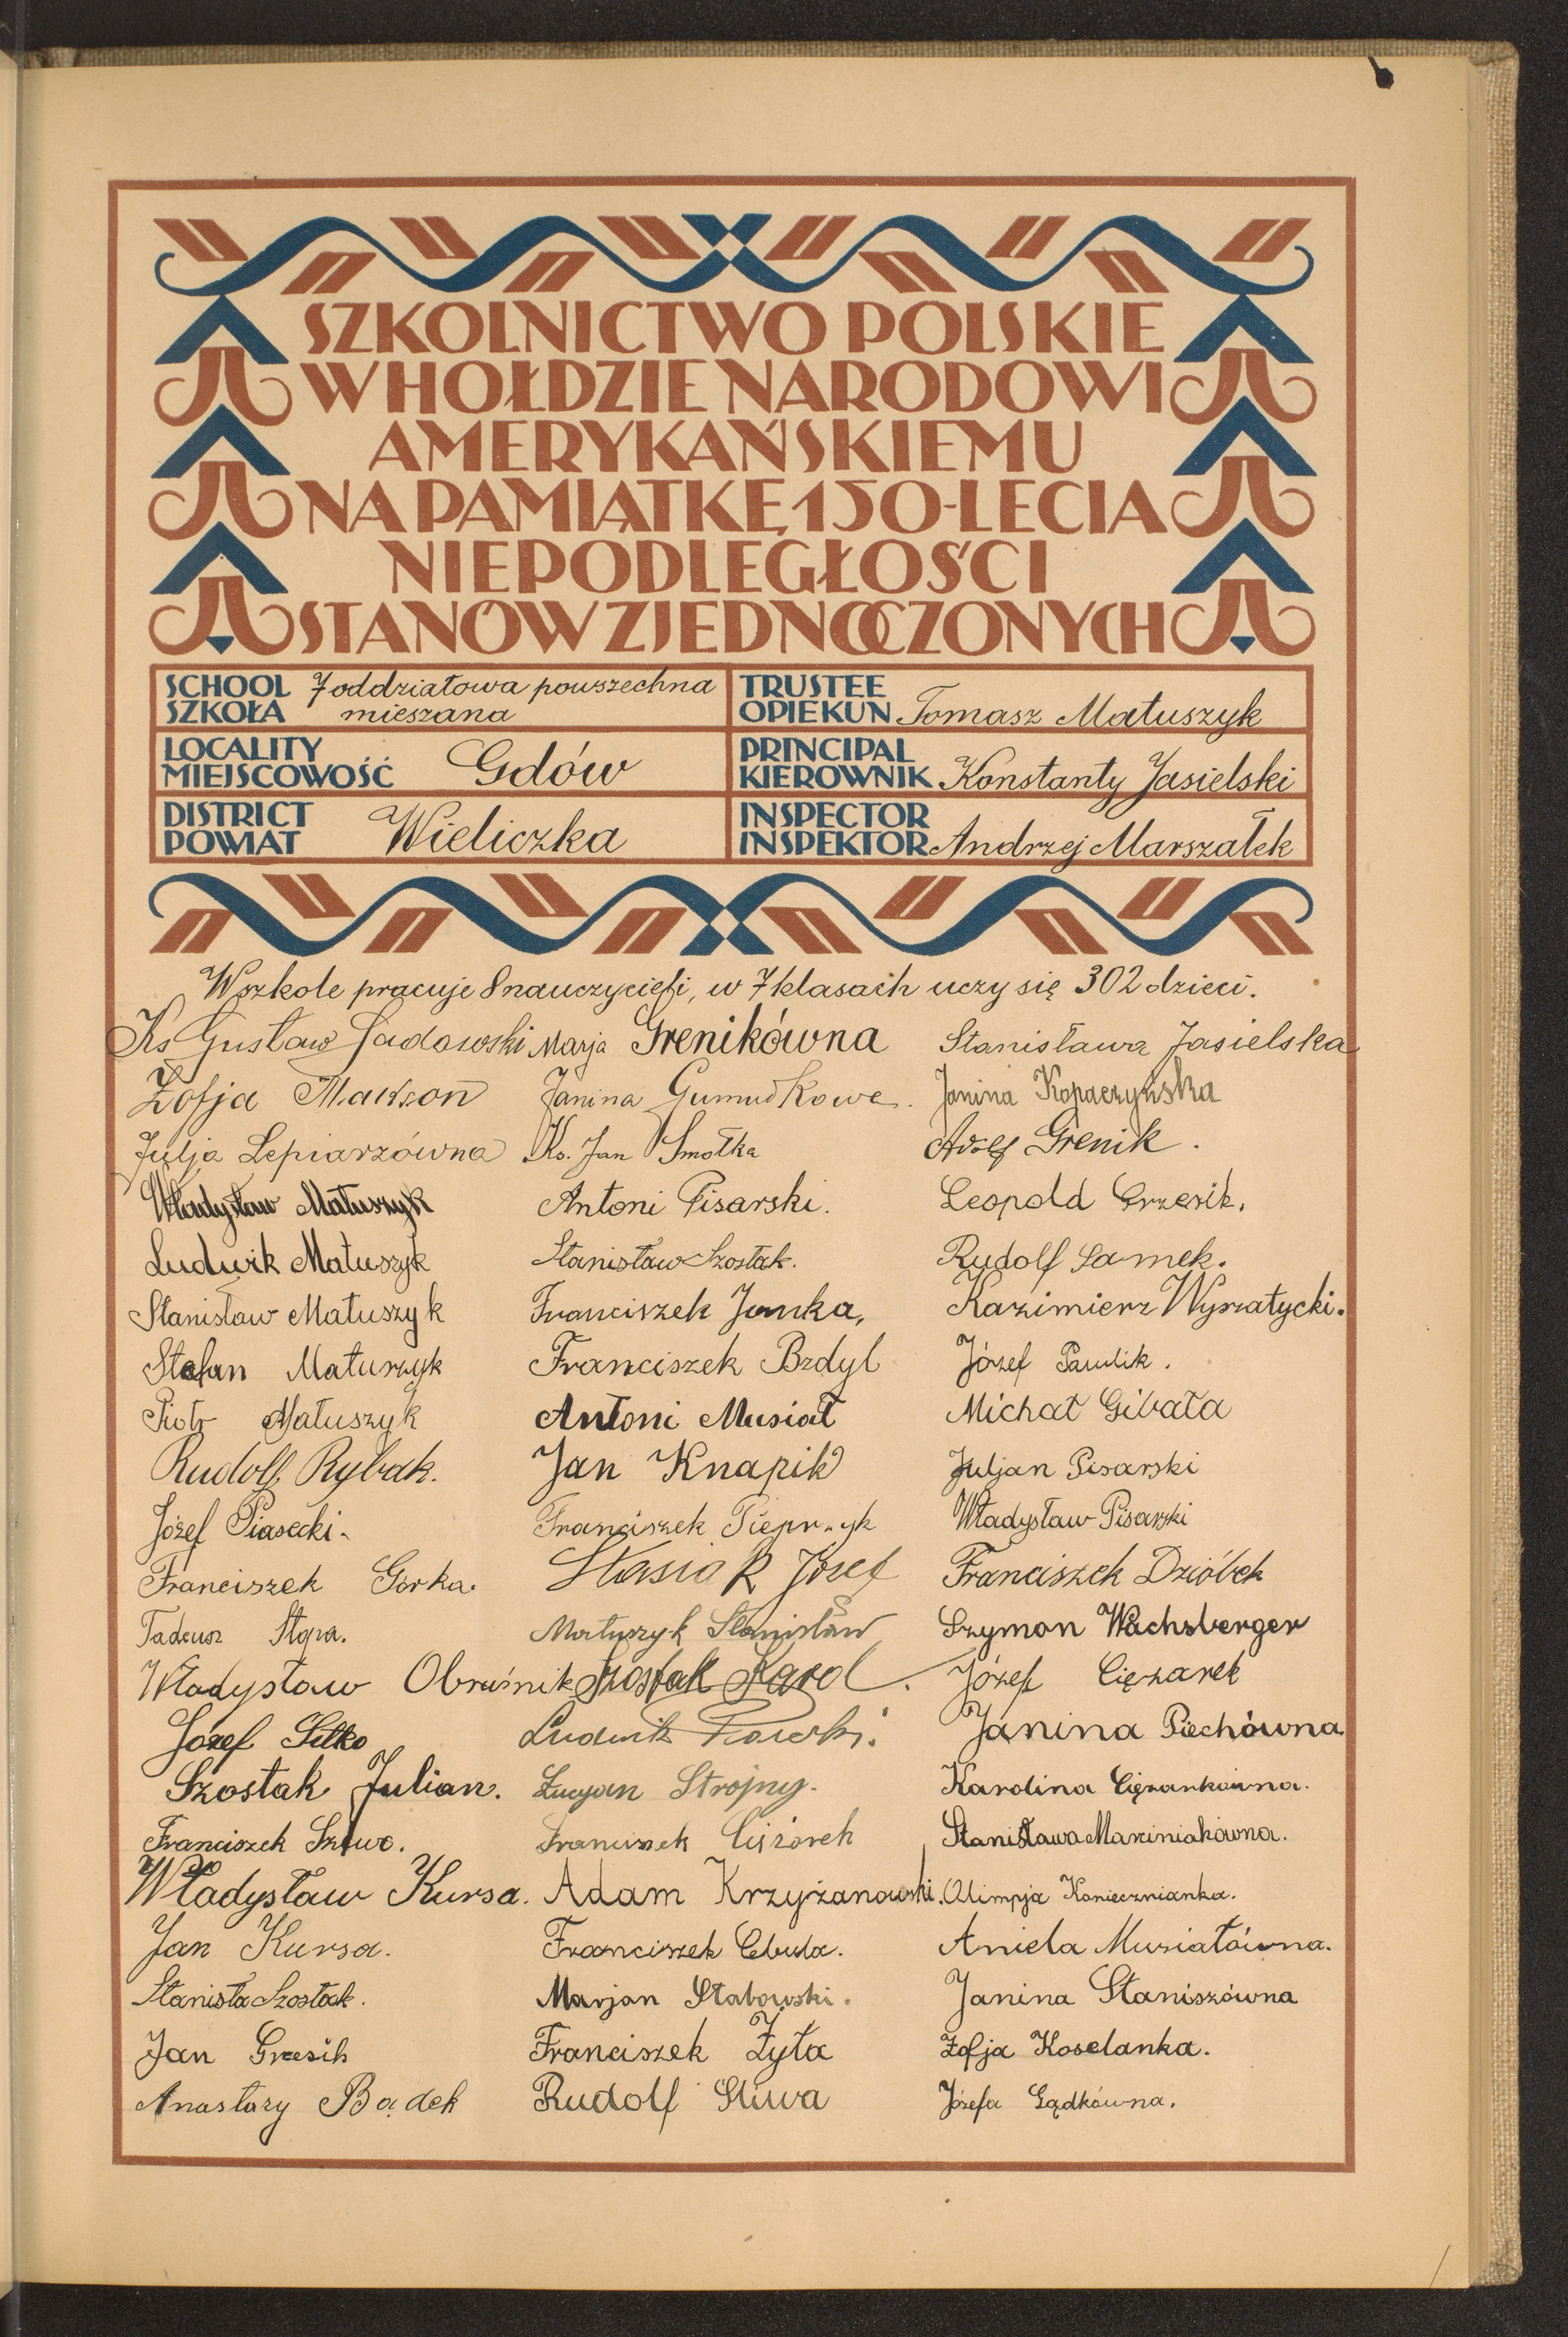 SZKOLNICTWO POLSKIE
W HOŁDZIE NARODOWI
AMERYKAŃSKIEMU
NA PAMIĄTKĘ 150-LECIA
NIEPODLEGŁOŚCI
STANÓW ZJEDNOCZONYCH
SCHOOL
SZKOŁA
7 oddziałowa powszechna
mieszana
TRUSTEE
OPIEKUN Tomasz Matuszyk
LOCALITY
MIEJSCOWOŚĆ Gdów
PRINCIPAL
KIEROWNIK Konstanty Jasielski
DISTRICT
POWIAT Wieliczka
INSPECTOR
INSPEKTOR Andrzej Marszałek
W szkole pracuje 8 nauczycieli, w 7 klasach uczy się 302 dzieci.
Ks Gustaw Sadowski Marja Grenikówna Stanisława Jasielska
Zofja Janina Janina Kopaczyńska
Julja Lepiarzówna Ks. Jan Smołka Adolf Grenik.
Władysław Matuszyk Antoni Pisarski. Leopold Grzesik.
Ludwik Matuszyk Stanisław Szostak. Rudolf Samek.
Stanisław Matuszyk Franciszek Janka, Kazimierz Wyszatycki.
Stefan Matuszyk Franciszek Bzdyl Józef Pawlik.
Piotr Matuszyk Antoni Musiał Michał Gibała
Rudolf Rybak. Jan Knapik Juljan Pisarski
Józef Piasecki. Franciszek Władysław Pisarski
Franciszek Górka. Stasiak Józef Franciszek Dzióbek
Tadeusz Stopa. Matuszyk Stanisław Szymon Wachsberger
Władysław Obruśnik Szostak Karol. Józef Ciężarek
Józef Ludwik Janina Piechówna
Szostak Julian. Lucyan Strojny. Karolina Ciężarkówna.
Franciszek Franciszek Ciężarek Stanisława Marciniakówna.
Władysław Kursa. Adam Krzyżanowski. Olimpja Koniecznianka.
Jan Kursa. Franciszek Cebula. Aniela Musiałówna.
Stanisła Szostak. Marjan Stabowski. Janina Staniszówna
Jan Grzesik Franciszek Żyła Zofja Koselanka.
Anastazy Bądek Rudolf Śliwa Józefa Gądkówna.